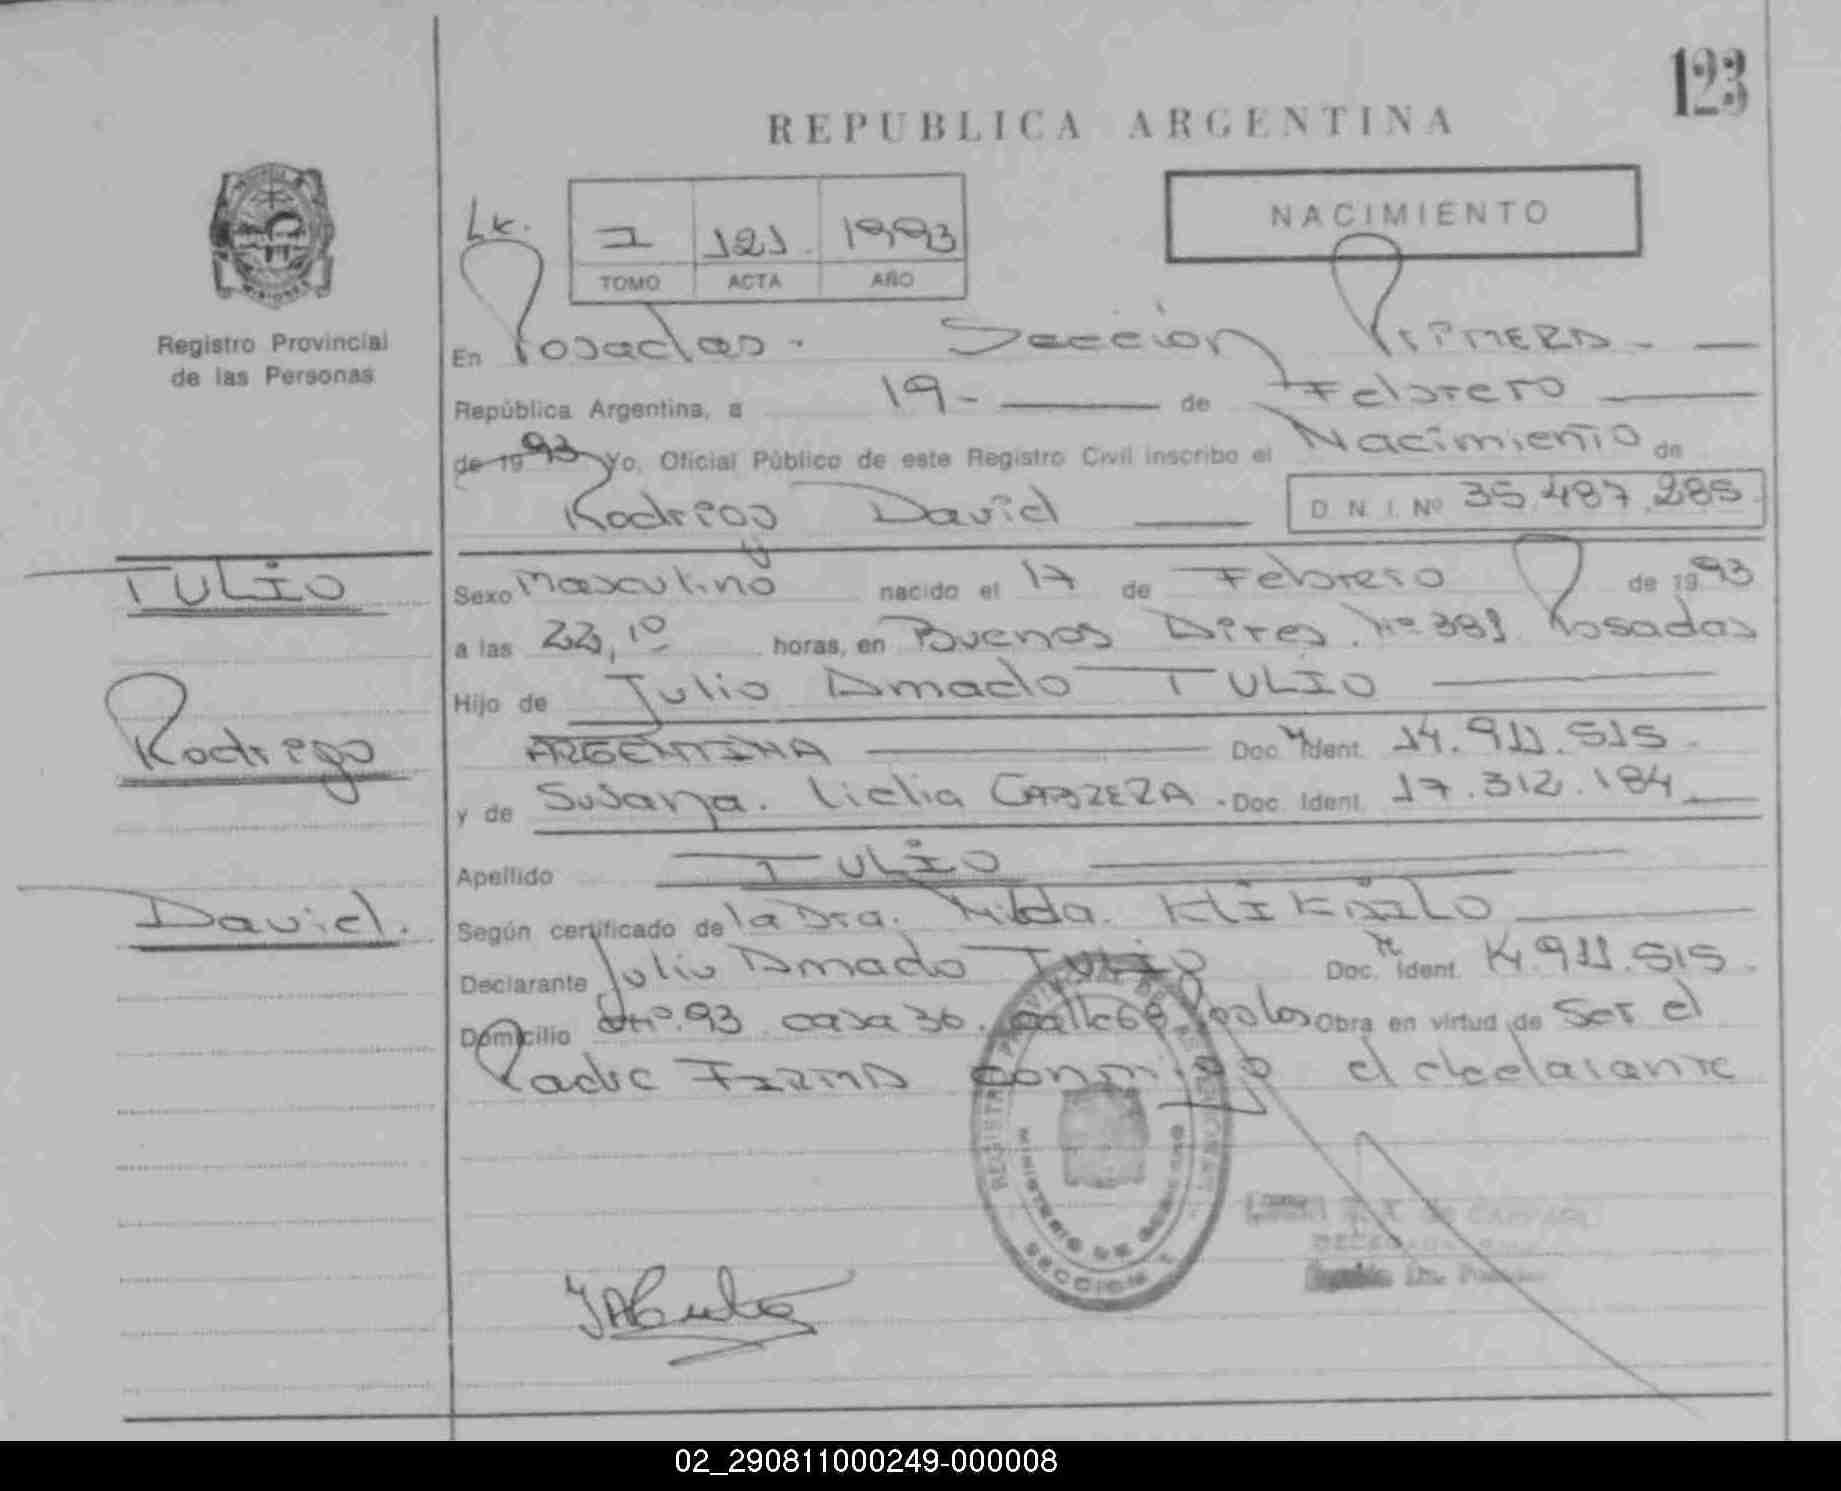 123
REPUBLICA ARGENTINA
NACIMIENTO
Lk.
I 121. 1993
TOMO ACTA AÑO
MISIONES
Registro Provincial
de las Personas
En Posadas. Sección PRIMERA.
República Argentina, a 19 - de Febrero
de 1993 Yo, Oficial Público de este Registro Civil inscribo el Nacimiento de
Rodrigo David D. N. I. Nº 35.487.285
TULIO
Rodrigo
David.
Sexo Masculino nacido el 17 de Febrero de 1993
a las 22,10 horas, en Buenos Aires Nº 381 Posadas
Hijo de Julio Amado TULIO
ARGENTINA Doc. Ident. 14.911.515.
y de Susana. Lidia CABRERA. Doc. Ident. 17.312.184
Apellido TULIO
Según certificado de la Dra. Hilda.
Declarante Julio Amado TULIO Doc. Ident. 14.911.515.
Domicilio Nº. 93 casa 36. calle 68 Obra en virtud de Ser el
Padre FIRMA conmigo el declarante
REGISTRO PROVINCIAL DE LAS PERSONAS
MINISTERIO DE GOBIERNO
SECCION 1
02_290811000249-000008